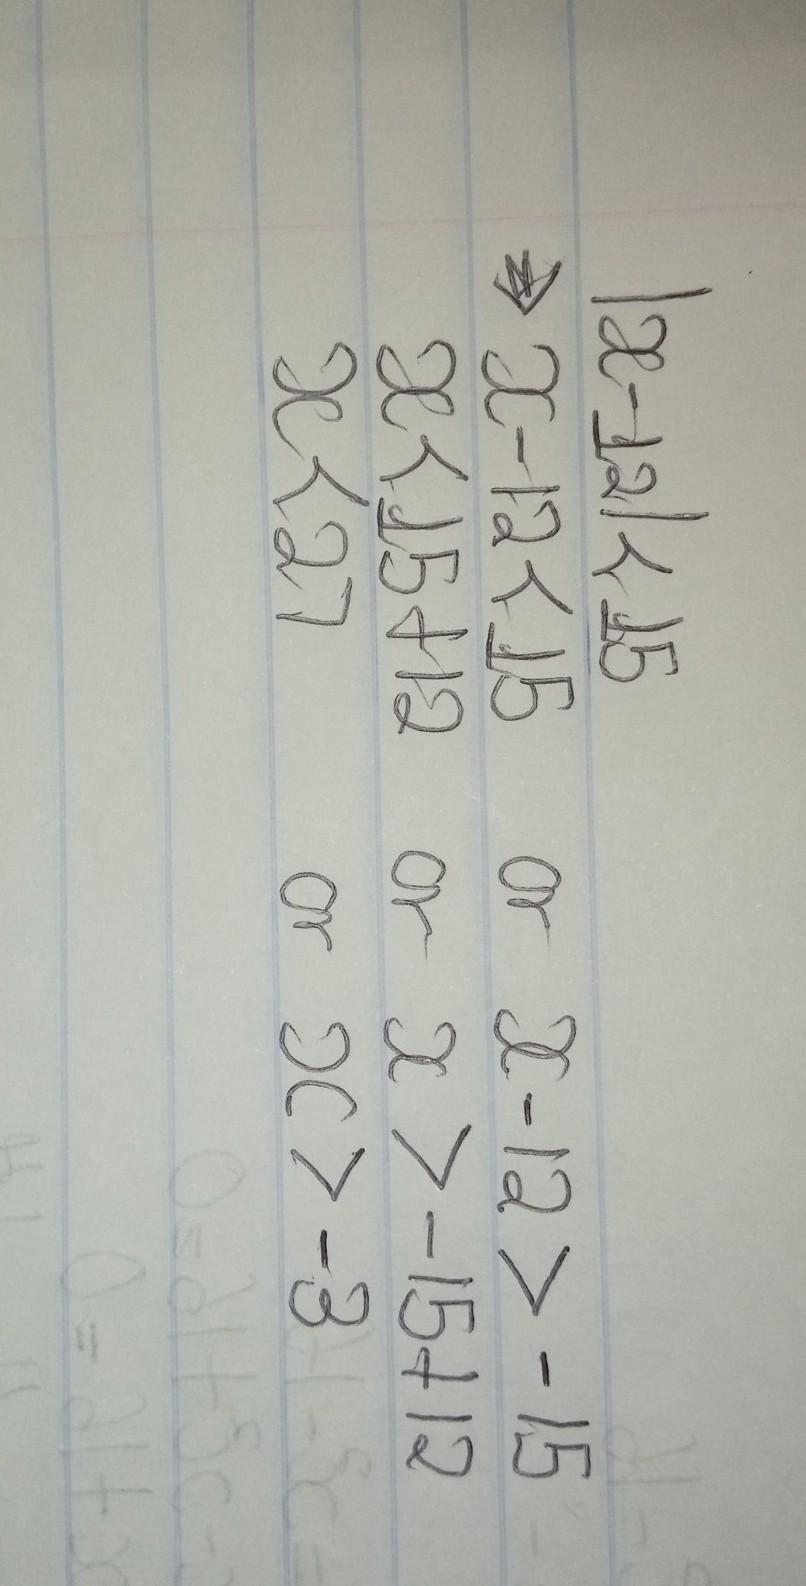 |x-12|<15
⇒ x-12<15 or x-12>-15
x<15+12 or x>-15+12
x<27 or x>-3